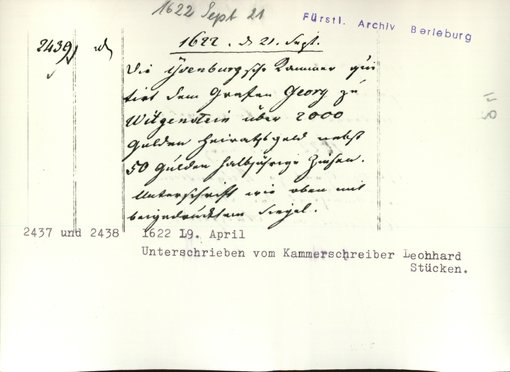 1622 Sept 21
Fürstl. Archiv Berleburg
2439
1622. d 21. Sept.
Die Isenburgsche Kammer quit
tirt dem Grafen Georg zu
Witgenstein über 2000
Gulden Heiratsgeld nebst
50 Gulden halbjährige Zinsen.
Unterschrift wie oben mit
beigedrucktem Siegel.
2437 und 2438 1622 19. April
Unterschrieben vom Kammerschreiber Leohhard
Stücken.